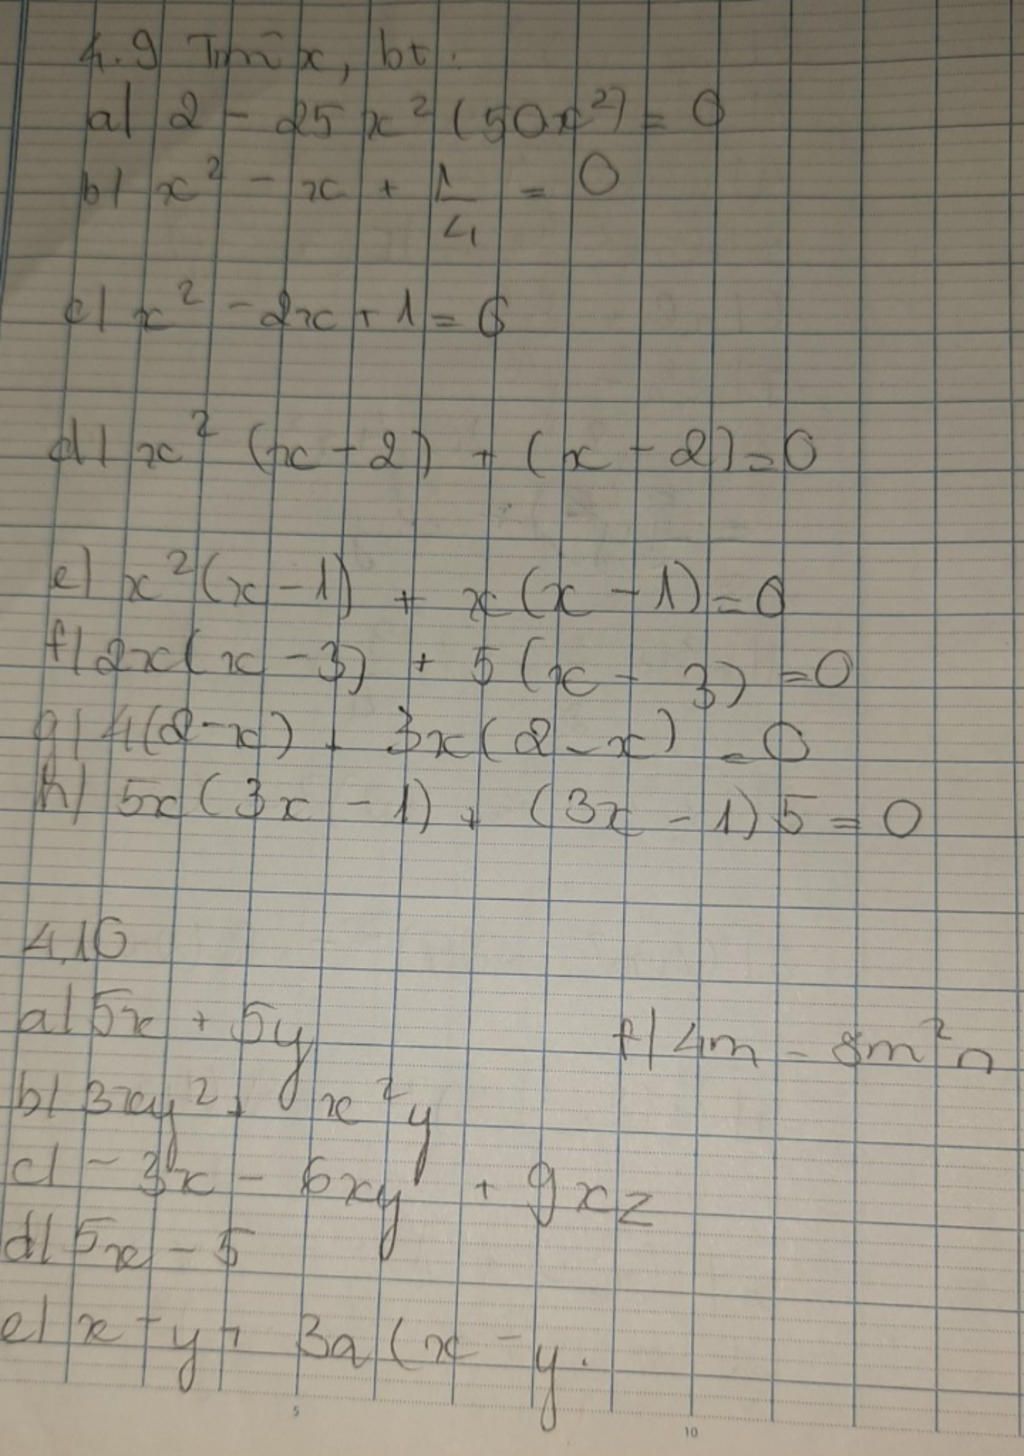 4.9 Tìm x, bt.
a) 2 - 25x² (50x²) = 0
b) x² - x + 1/4 = 0
c) x² - 2x + 1 = 0
d) x² (x - 2) + (x - 2) = 0
e) x²(x - 1) + x(x - 1) = 0
f) 2x(x - 3) + 5(x - 3) = 0
g) 4(2-x) + 3x(2-x) = 0
h) 5x(3x - 1) + (3x - 1)5 = 0
4.10
a) 5x + 5y
f) 4m - 8m²n
b) 3xy² + x²y
c) - 3x - 6xy + 9xz
d) 5x - 5
e) x - y + 3a(x - y.
5
10